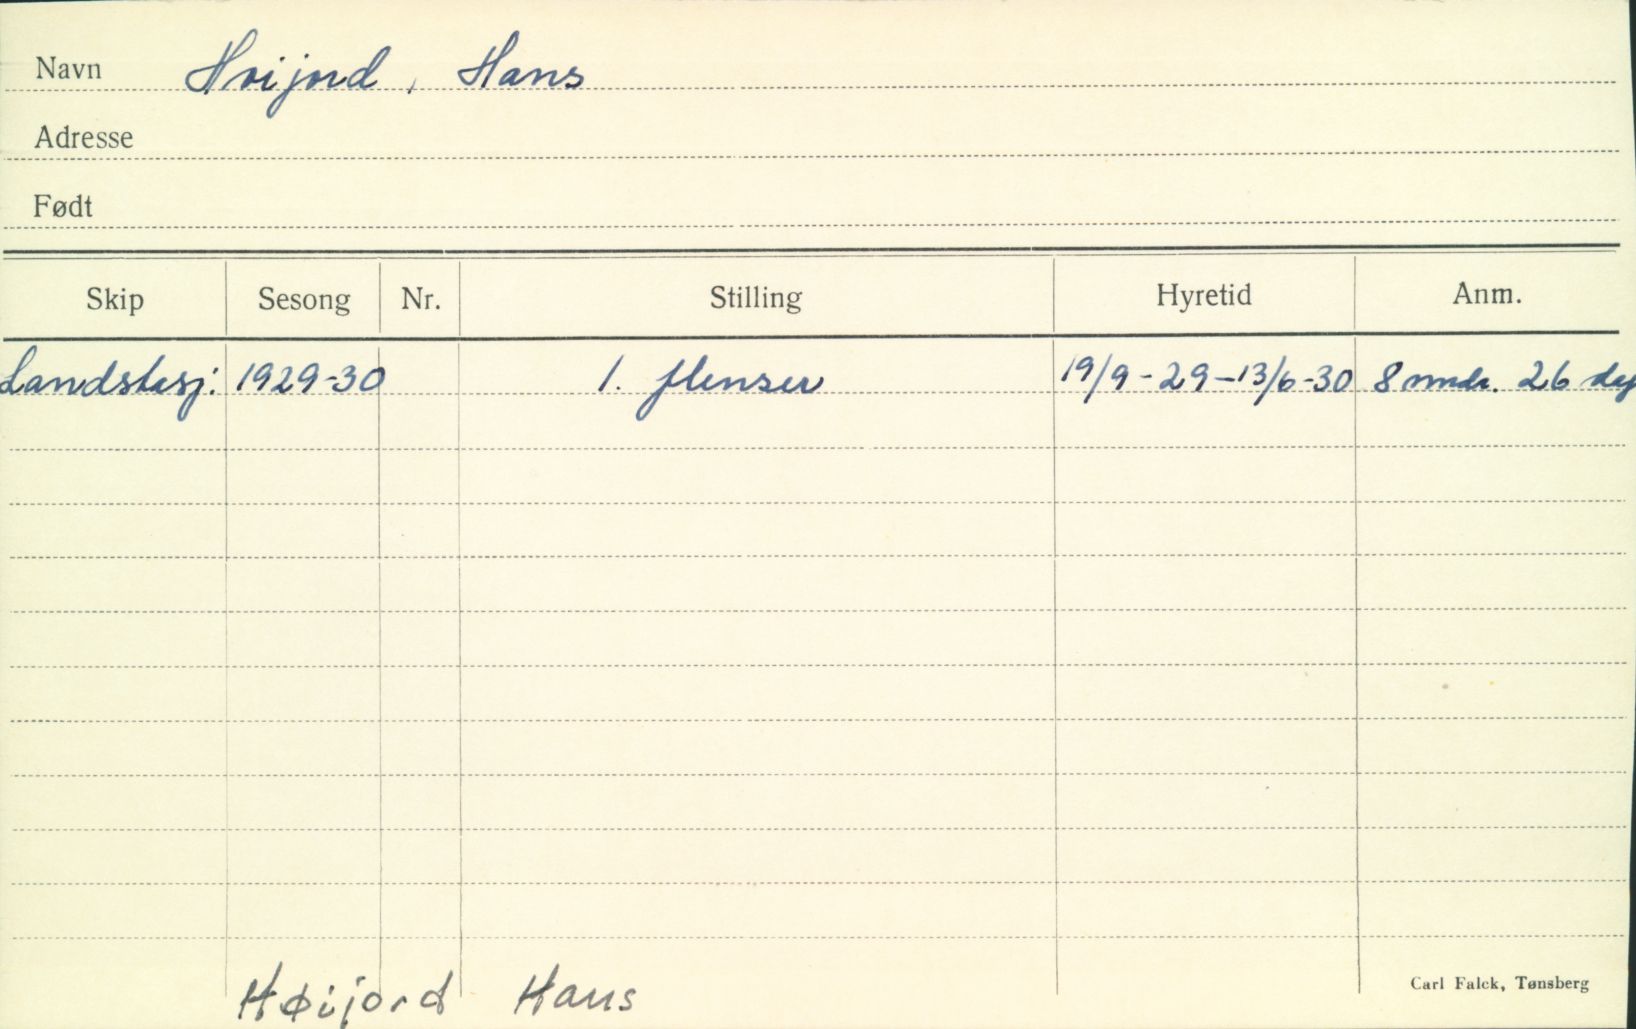 Navn Hvijord, Hans
Adresse
Født
Skip Sesong Nr. Stilling Hyretid Anm.
Landstasj: 1929-30 1. flenser 19/9-29-13/6-30 8 mndr. 26 dag
Carl Falck, Tønsberg
Høijord Hans